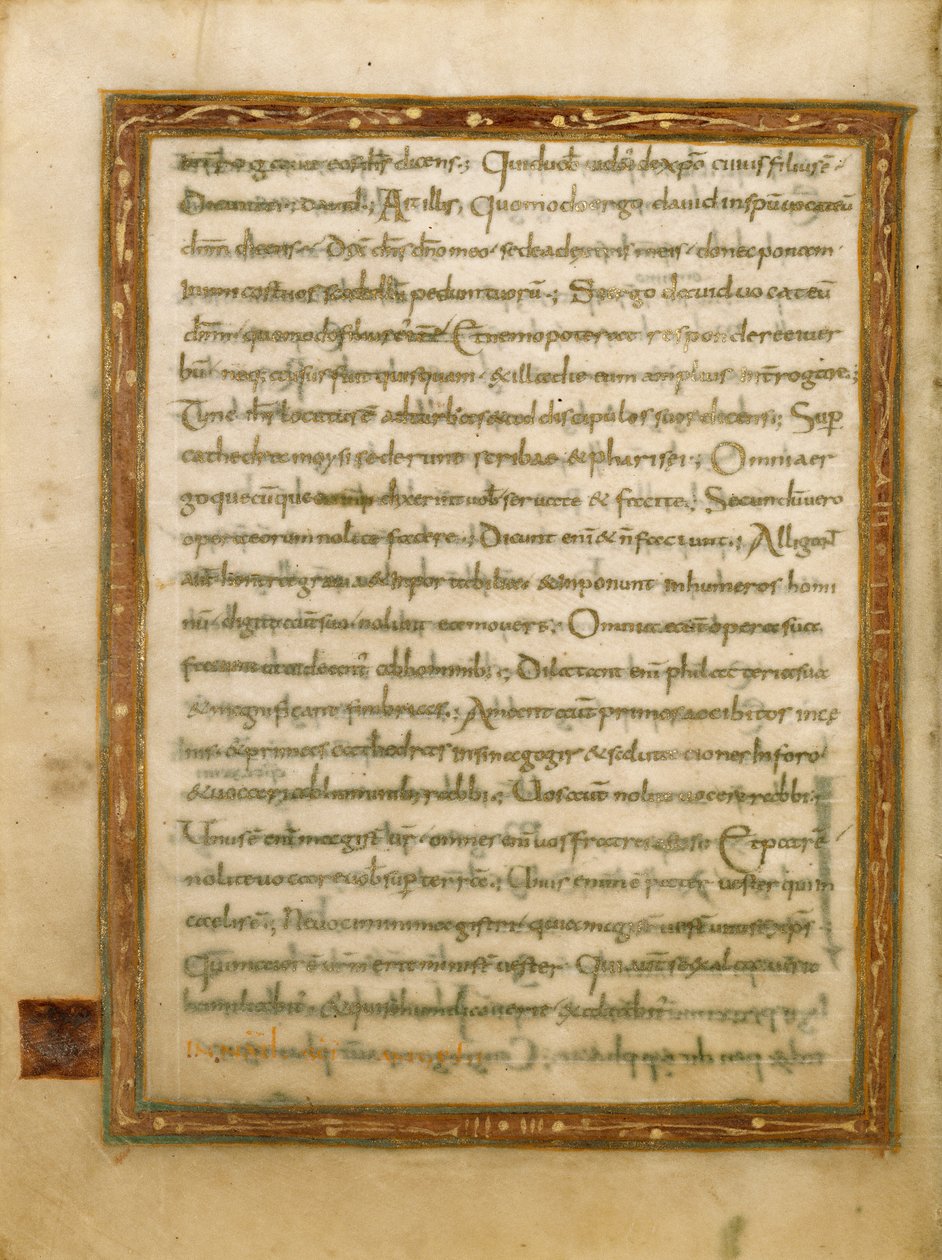 eos ihs dicens.; Quid uob uidr de xpo cuius filius ē.
dauid.; Ait illis, Quomodo ergo dauid in spū uocat eū
dnm dicens. Dix dns dno meo. sede a dextris meis. donec ponam
inimicos tuos pedum tuorū.; Si ergo dauid uocat eū
dnm. quomodo filius ei Et nemo poterat respondere ei uer
bū. neq; ausus fuit quisquam ex illa die eum amplius introgare.;
Tunc ihs locutus ē ad turbas & ad discipulos suos dicens.; Sup
cathedra moysi sederunt scribae & pharisei.; Omnia er
go quecūque dixerint uob seruate & facite.; Secundū uero
opera eorum nolite facere.; Dicunt eni & n faciunt.; Alligant
aut honera grauia & inportabilia. & inponunt in humeros homi
nū. digito aut suo nolunt ea mouere. Omnia aut opera sua
faciunt ut uideant ab hominib.; Dilatant eni philacteria sua
& magnificant fimbrias.; Amant aut primos accubitos in ce
nis. & primas cathedras in sinagogis & salutationes in foro.
& uocari ab hominib; rabbi.; Uos aut nolite uocari rabbi.;
Unus ē eni magist ur. omnes eni uos fratres estis. Et patrē
nolite uocare uob sup terrā.; Unus enim ē pater uester qui in
caelis ē.; Nec uocemini magistri. quia magist uest unus ē xps
Qui maior ē urm erit minist uester Qui aut se exaltauerit
humiliabit. & qui se humiliauerit. exaltabit